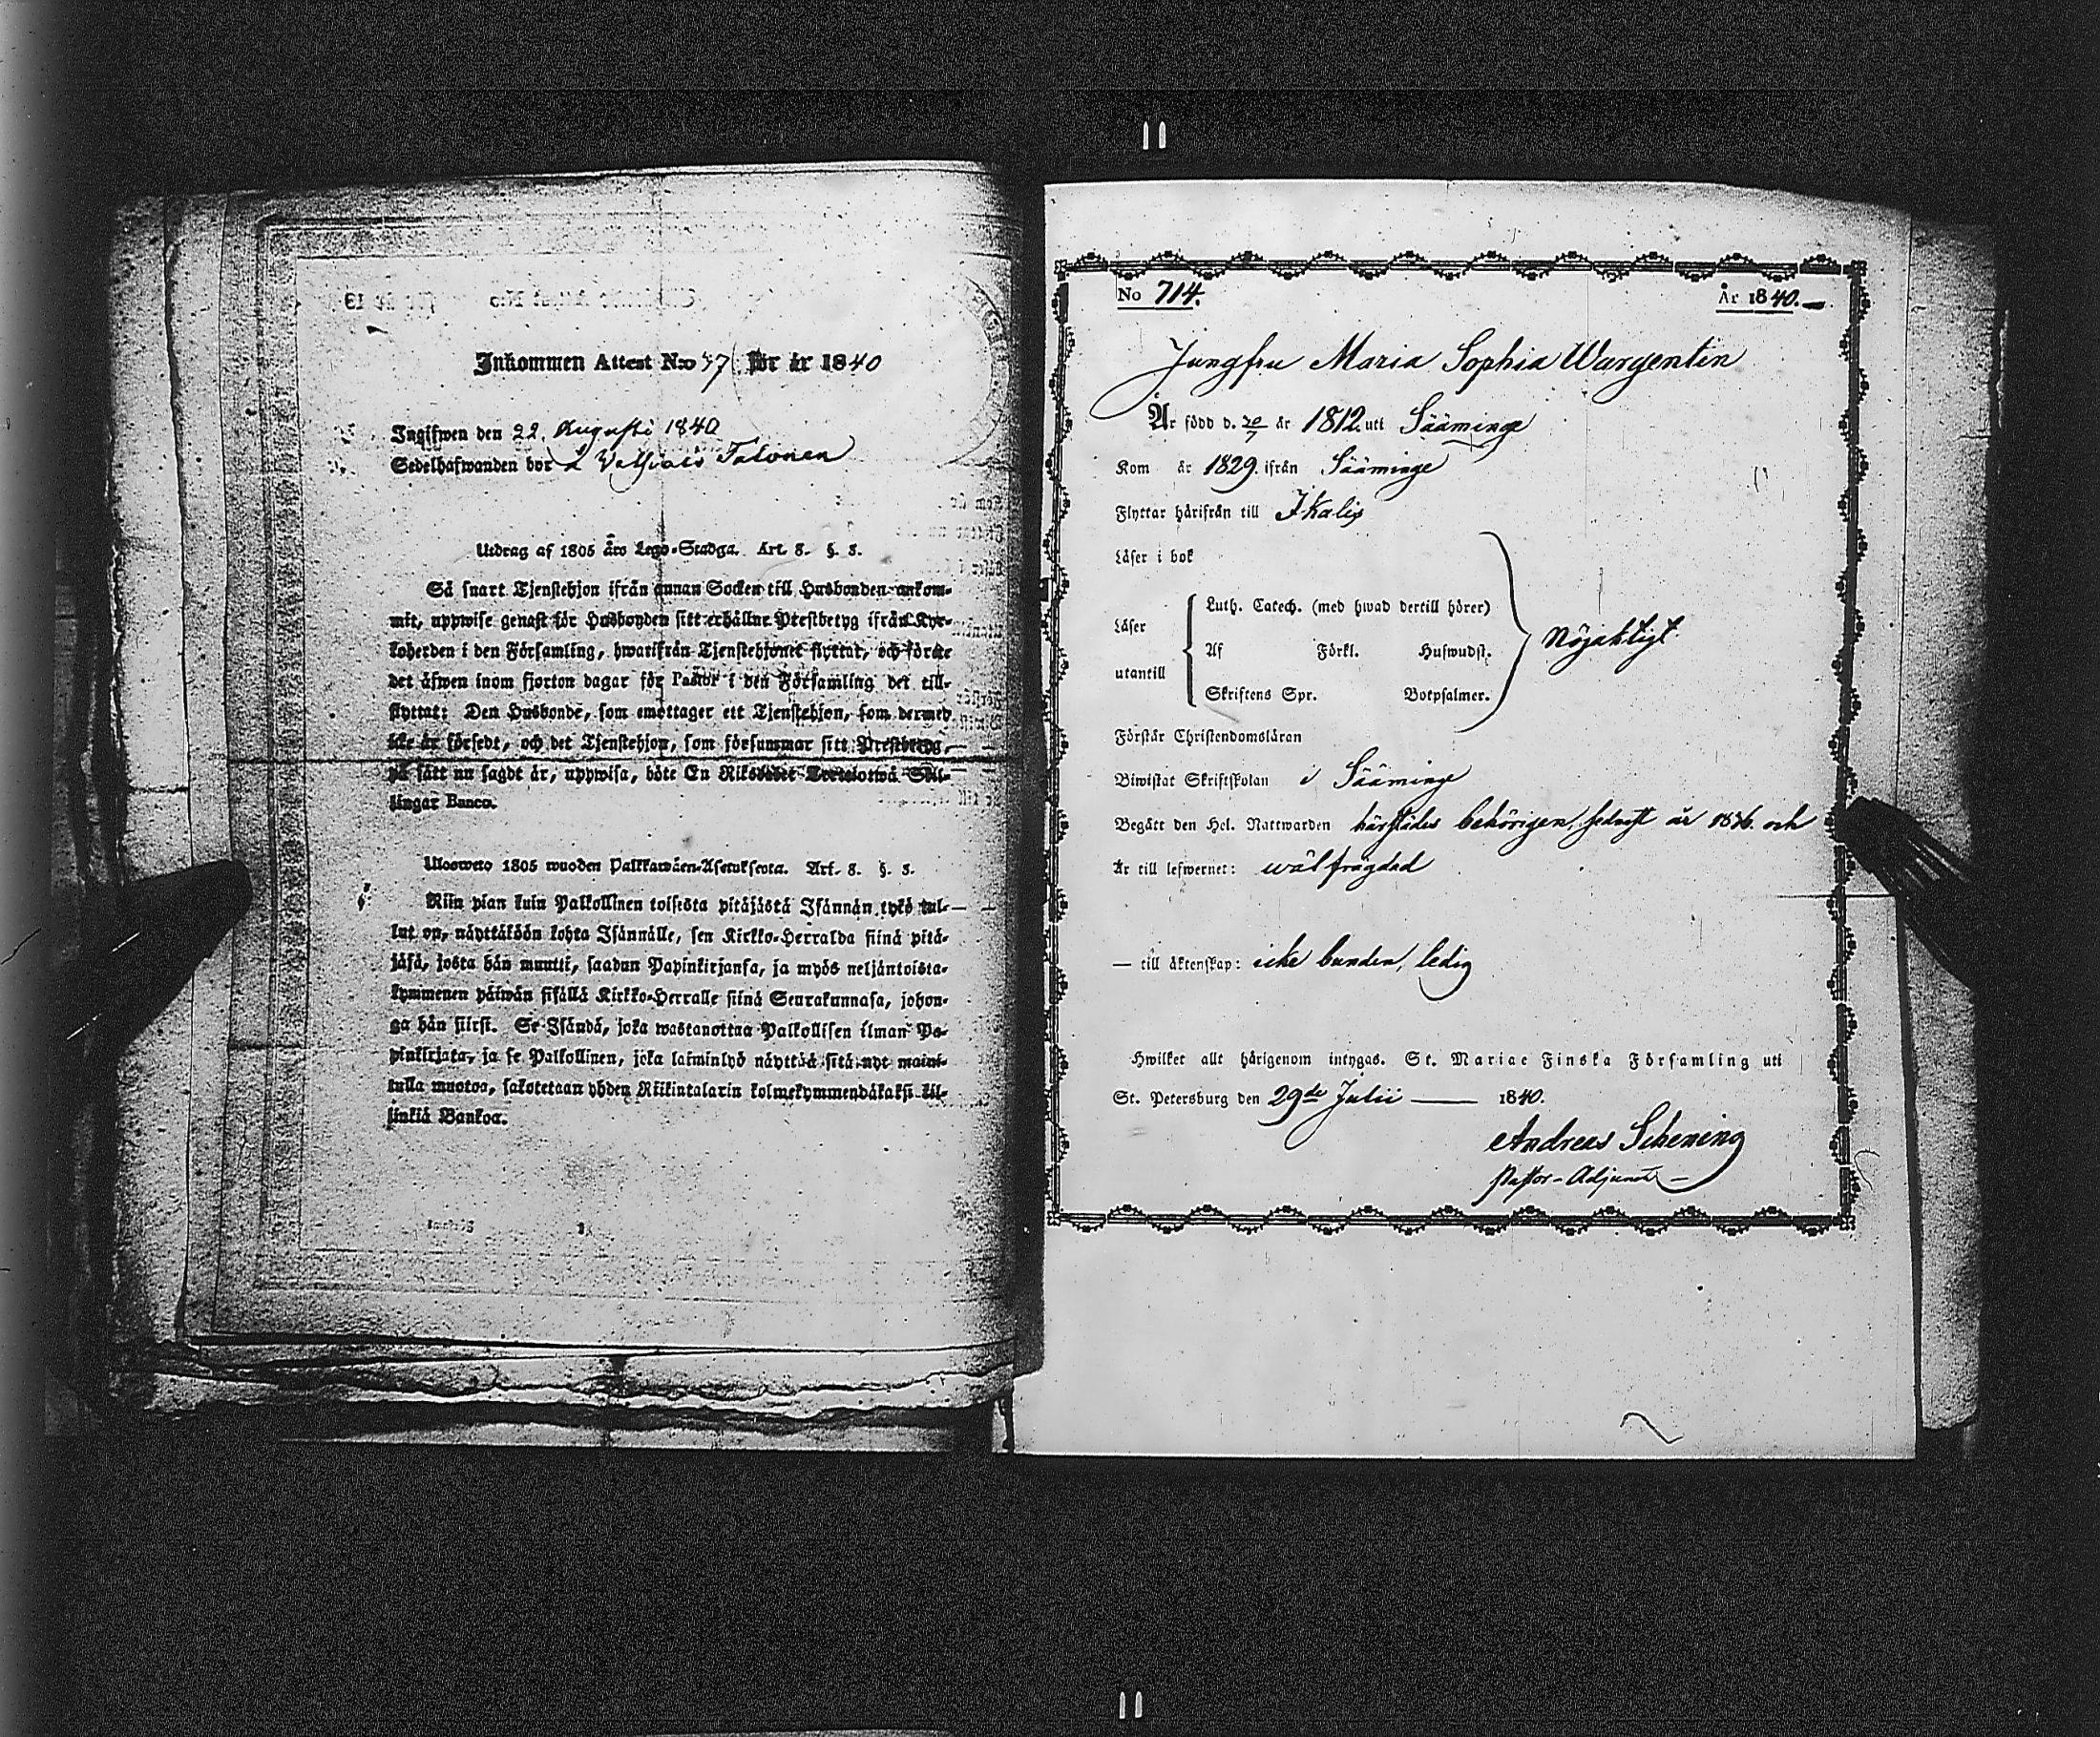 Inkommen Attest N:o 57 för år 1840
Ingifwen den 22. Augusti 1840
Sedelhafwanden bor å Talonen
Utdrag af 1805 års Lego-Stadga. Art. 8. §. 3.
Så snart Tjenstehjon ifrån annan Socken till Husbonden ankom-
mit, uppwise genast för Husbonden sitt erhållne Prestbetyg ifrån Kyr-
koherden i den Församling, hwarifrån Tjenstehjonet flyttat, och förete
det äfwen inom fjorton dagar för Pastor i den Församling det till-
flyttat: Den Husbonde, som emottager ett Tjenstehjon, som dermed
icke är försedt, och det Tjenstehjon, som försummar sitt Prestbetyg,
på sätt nu sagdt är, uppwisa, böte En Riksdaler Trettiotwå Skil-
lingar Banco.
Ulosweto 1805 wuoden Palkkawäen-Asetuksesta. Art. 8. §. 3.
Niin pian kuin Palkollinen toisesta pitäjästä Isännän tykö tul-
lut on, näyttäköön kohta Isännälle, sen Kirkko-Herralda siinä pitä-
jäsä, josta hän muutti, saadun Papinkirjansa, ja myös neljäntoista-
kymmenen päiwän sisällä Kirkko-Herralle siinä Seurakunnasa, johon-
ga hän siirst. Se Isändä, joka wastanottaa Palkollisen ilman Pa-
pinkirjata, ja se Palkollinen, joka laiminlyö näyttää sitä nyt maini-
tulla muotoa, sakotetaan yhden Riikintalarin kolmekymmendäkaksi kil-
linkiä Bankoa.
No 714. År 1840.
Jungfru Maria Sophia Wargentin
Är född d. 20/7 år 1812. uti Sääminge
Kom år 1829. ifrån Sääminge
Flyttar härifrån till Ikalis
Läser i bok
Luth. Catech. (med hwad dertill hörer)
Läser
Af Förkl. Hufwudst. Nöjaktigt
utantill
Skriftens Spr. Botpsalmer.
Förstår Christendomsläran
Biwistat Skriftskolan i Sääminge
Begått den Hel. Nattwarden härstädes behörigen, sednast år 1836. och
Är till lefwernet: wälfrägdad
— till äktenskap: icke bunden, ledig
Hwilket allt härigenom intygas. St. Mariae Finska Församling uti
St. Petersburg den 29de Julii — 1840.
Andreas Schening
Pastor-Adjunct